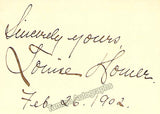 Sincerely yours,
Louise Homer.
Feb. 26. 1902.